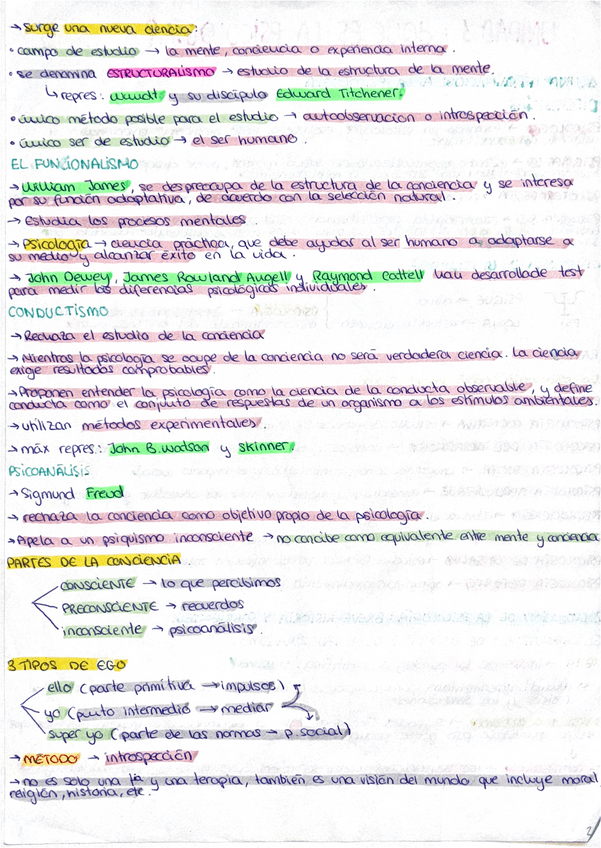 → surge una nueva ciencia:
• campo de estudio → la mente, conciencia o experiencia interna.
• se denomina ESTRUCTURALISMO → estudio de la estructura de la mente.
↳ repres: Wundt y su discípulo Edward Titchener.
• único método posible para el estudio → autoobservación o introspección.
• único ser de estudio → el ser humano.
EL FUNCIONALISMO
→ William James, se despreocupa de la estructura de la conciencia y se interesa
por su función adaptativa, de acuerdo con la selección natural.
→ Estudia los procesos mentales.
→ Psicología → ciencia práctica, que debe ayudar al ser humano a adaptarse a
su medio y alcanzar éxito en la vida.
→ John Dewey, James Rowland Angell y Raymond Cattell han desarrollado test
para medir las diferencias psicológicas individuales.
CONDUCTISMO
→ Rechaza el estudio de la conciencia
→ Mientras la psicología se ocupe de la conciencia no será verdadera ciencia. La ciencia
exige resultados comprobables.
→ Proponen entender la psicología como la ciencia de la conducta observable, y define
conducta como el conjunto de respuestas de un organismo a los estímulos ambientales.
→ utilizan métodos experimentales.
→ máx repres: John B. Watson y Skinner
PSICOANÁLISIS
→ Sigmund Freud
→ rechaza la conciencia como objetivo propio de la psicología.
→ Apela a un psiquismo inconsciente → no concibe como equivalente entre mente y conciencia
PARTES DE LA CONCIENCIA
CONSCIENTE → lo que percibimos
PRECONSCIENTE → recuerdos
inconsciente → psicoanálisis.
3 TIPOS DE EGO
ello (parte primitiva → impulsos)
yo (punto intermedio → mediar
super yo (parte de las normas → p. social)
→ MÉTODO → introspección
→ no es solo una y una terapia, también es una visión del mundo que incluye moral
religión, historia, etc.
2